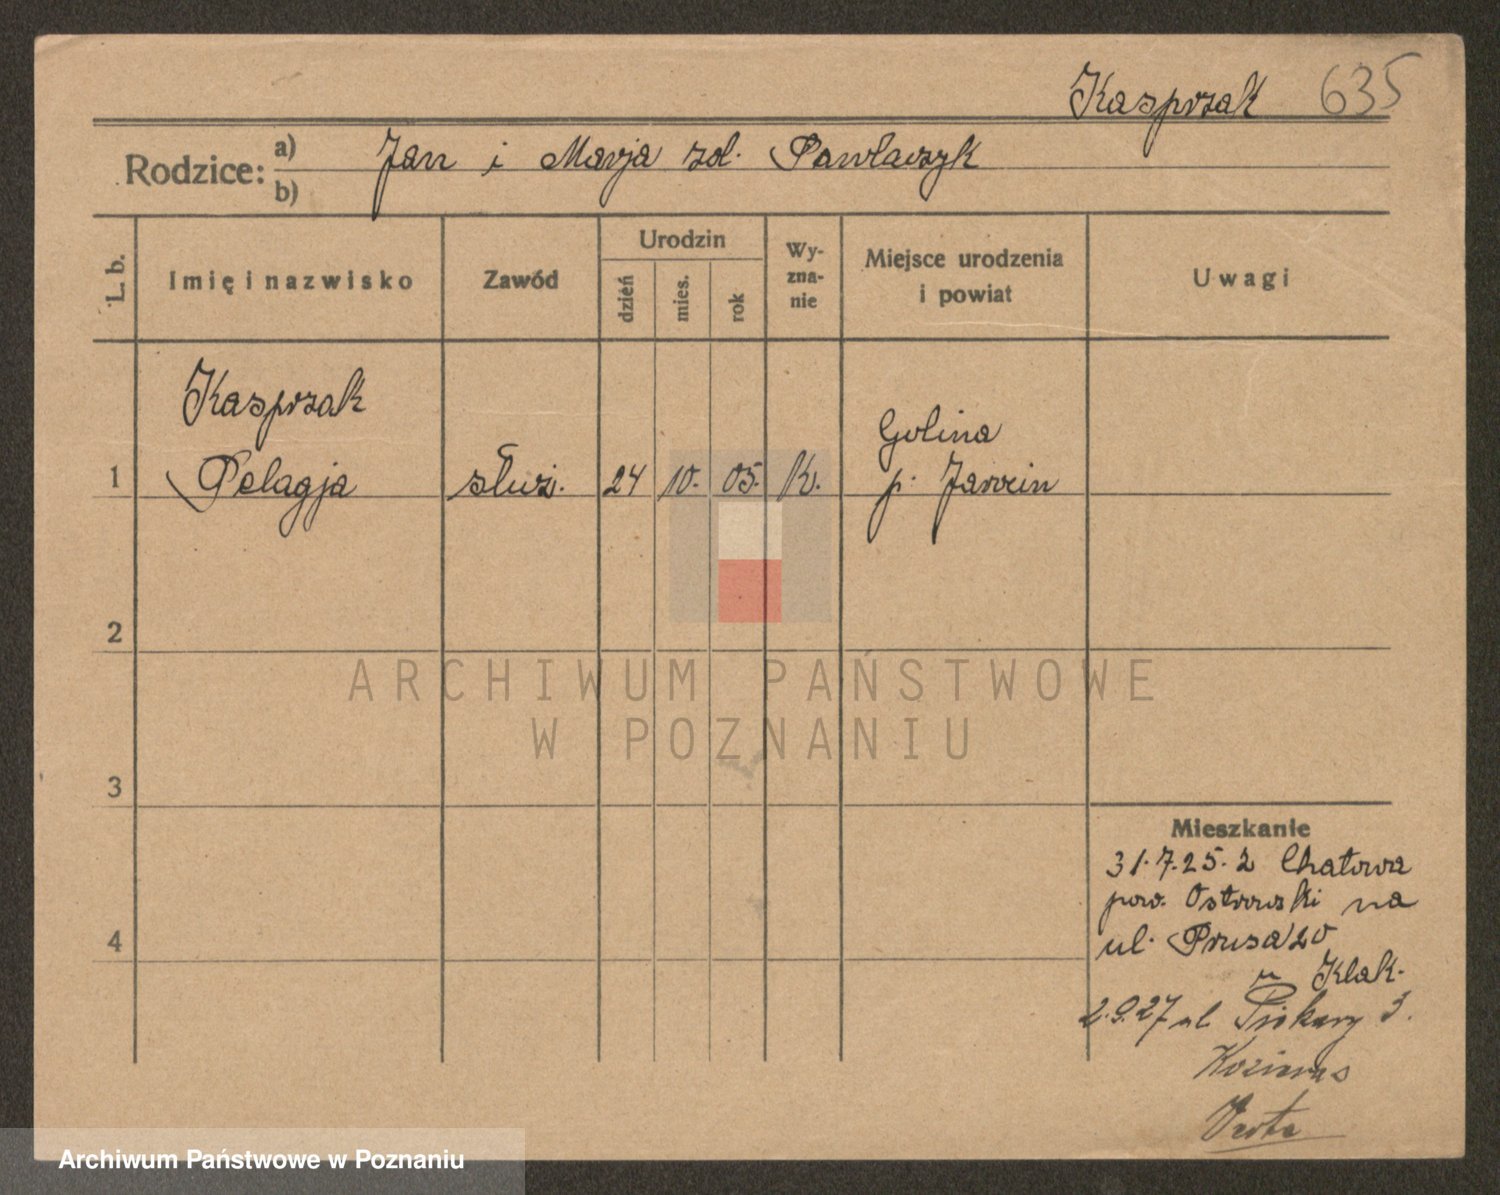 Kasprzak 635
Rodzice: a) Jan i Marja zd. Pawlaczyk
b)
L. b.
Imię i nazwisko
Zawód
Urodzin
dzień
mies.
rok
Wy-
zna-
nie
Miejsce urodzenia
i powiat
Uwagi
Kasprzak
Golina
1 Pelagja służ. 24 10. 05. k. p. Jarocin
2
3
4
Mieszkanie
31.7.25. z Chatowa
pow. Ostrowski na
ul. Prusa 20
u Klak.
2.9.27 ul Piekary 3.
ARCHIWUM PAŃSTWOWE
W POZNANIU
Archiwum Państwowe w Poznaniu